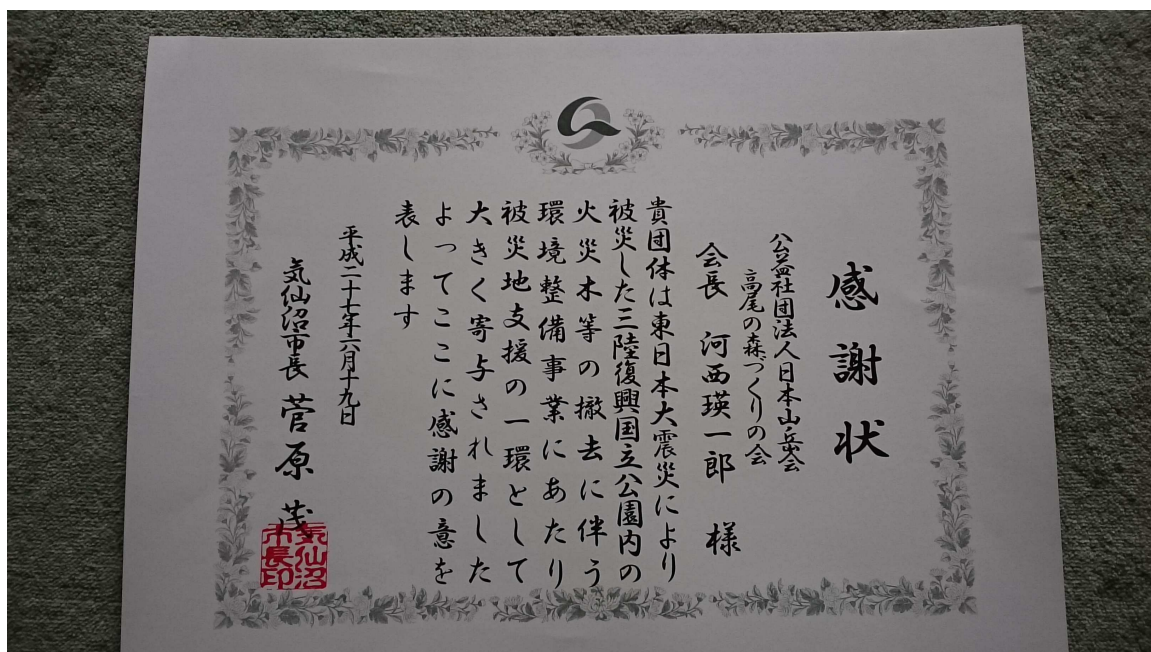 感謝状
公益社団法人日本山岳会
高尾の森づくりの会
会長 河西瑛一郎 様
貴団体は東日本大震災により
被災した三陸復興国立公園内の
火災木等の撤去に伴う
環境整備事業にあたり
被災地支援の一環として
大きく寄与されました
よってここに感謝の意を
表します
平成二十七年六月十九日
気仙沼市長 菅原 茂
気仙沼
市長印